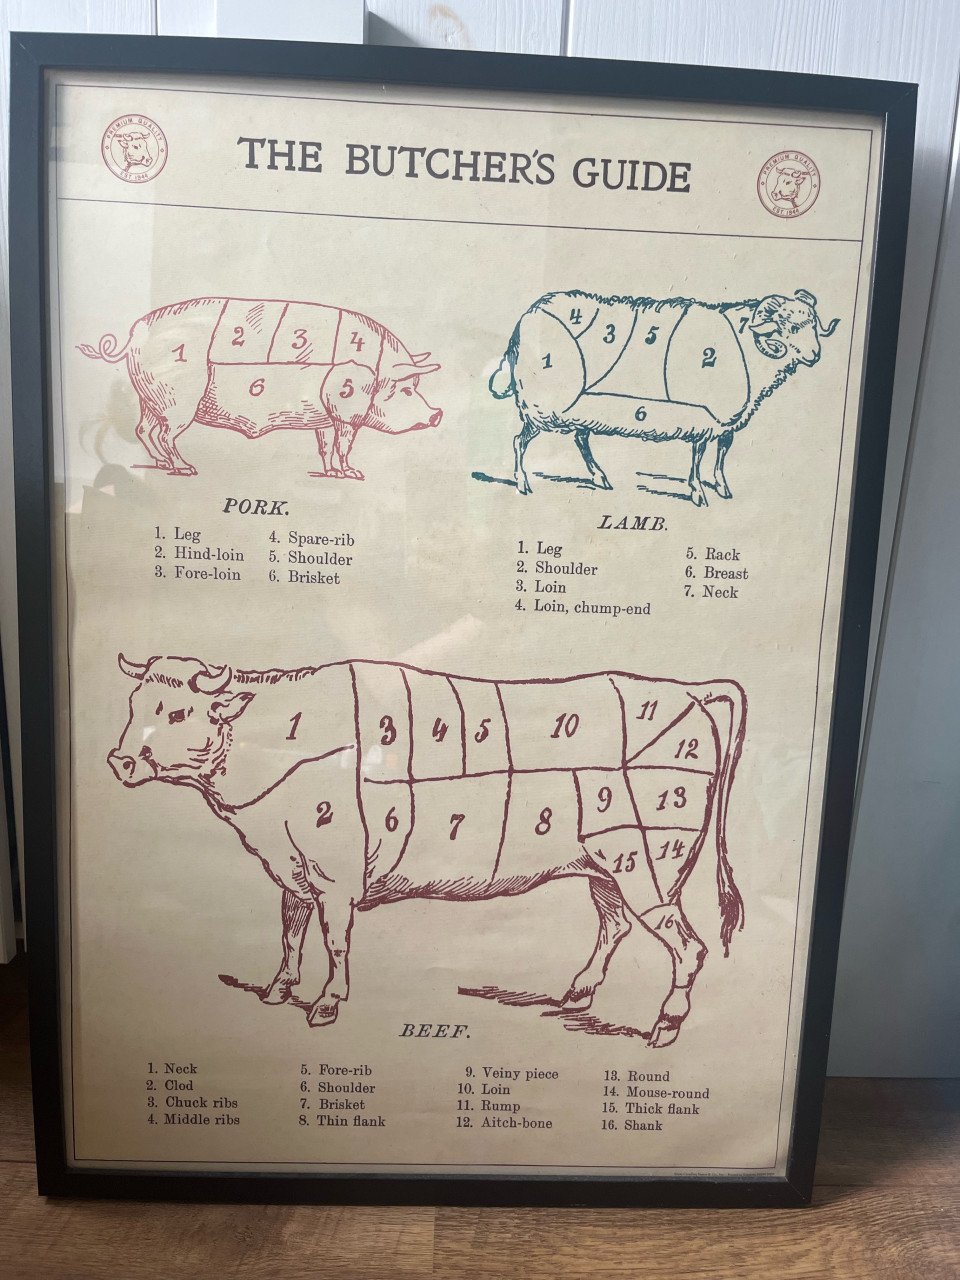 THE BUTCHER'S GUIDE
PREMIUM QUALITY
EST 1944
PREMIUM QUALITY
EST 1944
1
2
3
4
5
6
PORK.
1. Leg
2. Hind-loin
3. Fore-loin
4. Spare-rib
5. Shoulder
6. Brisket
1
4
3
5
2
7
6
LAMB.
1. Leg
2. Shoulder
3. Loin
4. Loin, chump-end
5. Rack
6. Breast
7. Neck
1
2
3
4
5
10
11
12
6
7
8
9
13
15
14
16
BEEF.
1. Neck
2. Clod
3. Chuck ribs
4. Middle ribs
5. Fore-rib
6. Shoulder
7. Brisket
8. Thin flank
9. Veiny piece
10. Loin
11. Rump
12. Aitch-bone
13. Round
14. Mouse-round
15. Thick flank
16. Shank